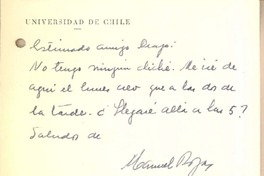 UNIVERSIDAD DE CHILE
Estimado amigo
No tengo ningún cliché. Me iré de
aquí el lunes creo que a las dos de
la tarde. ¿ Llegaré allí a las 5?
Saludos de
Manuel Rojas